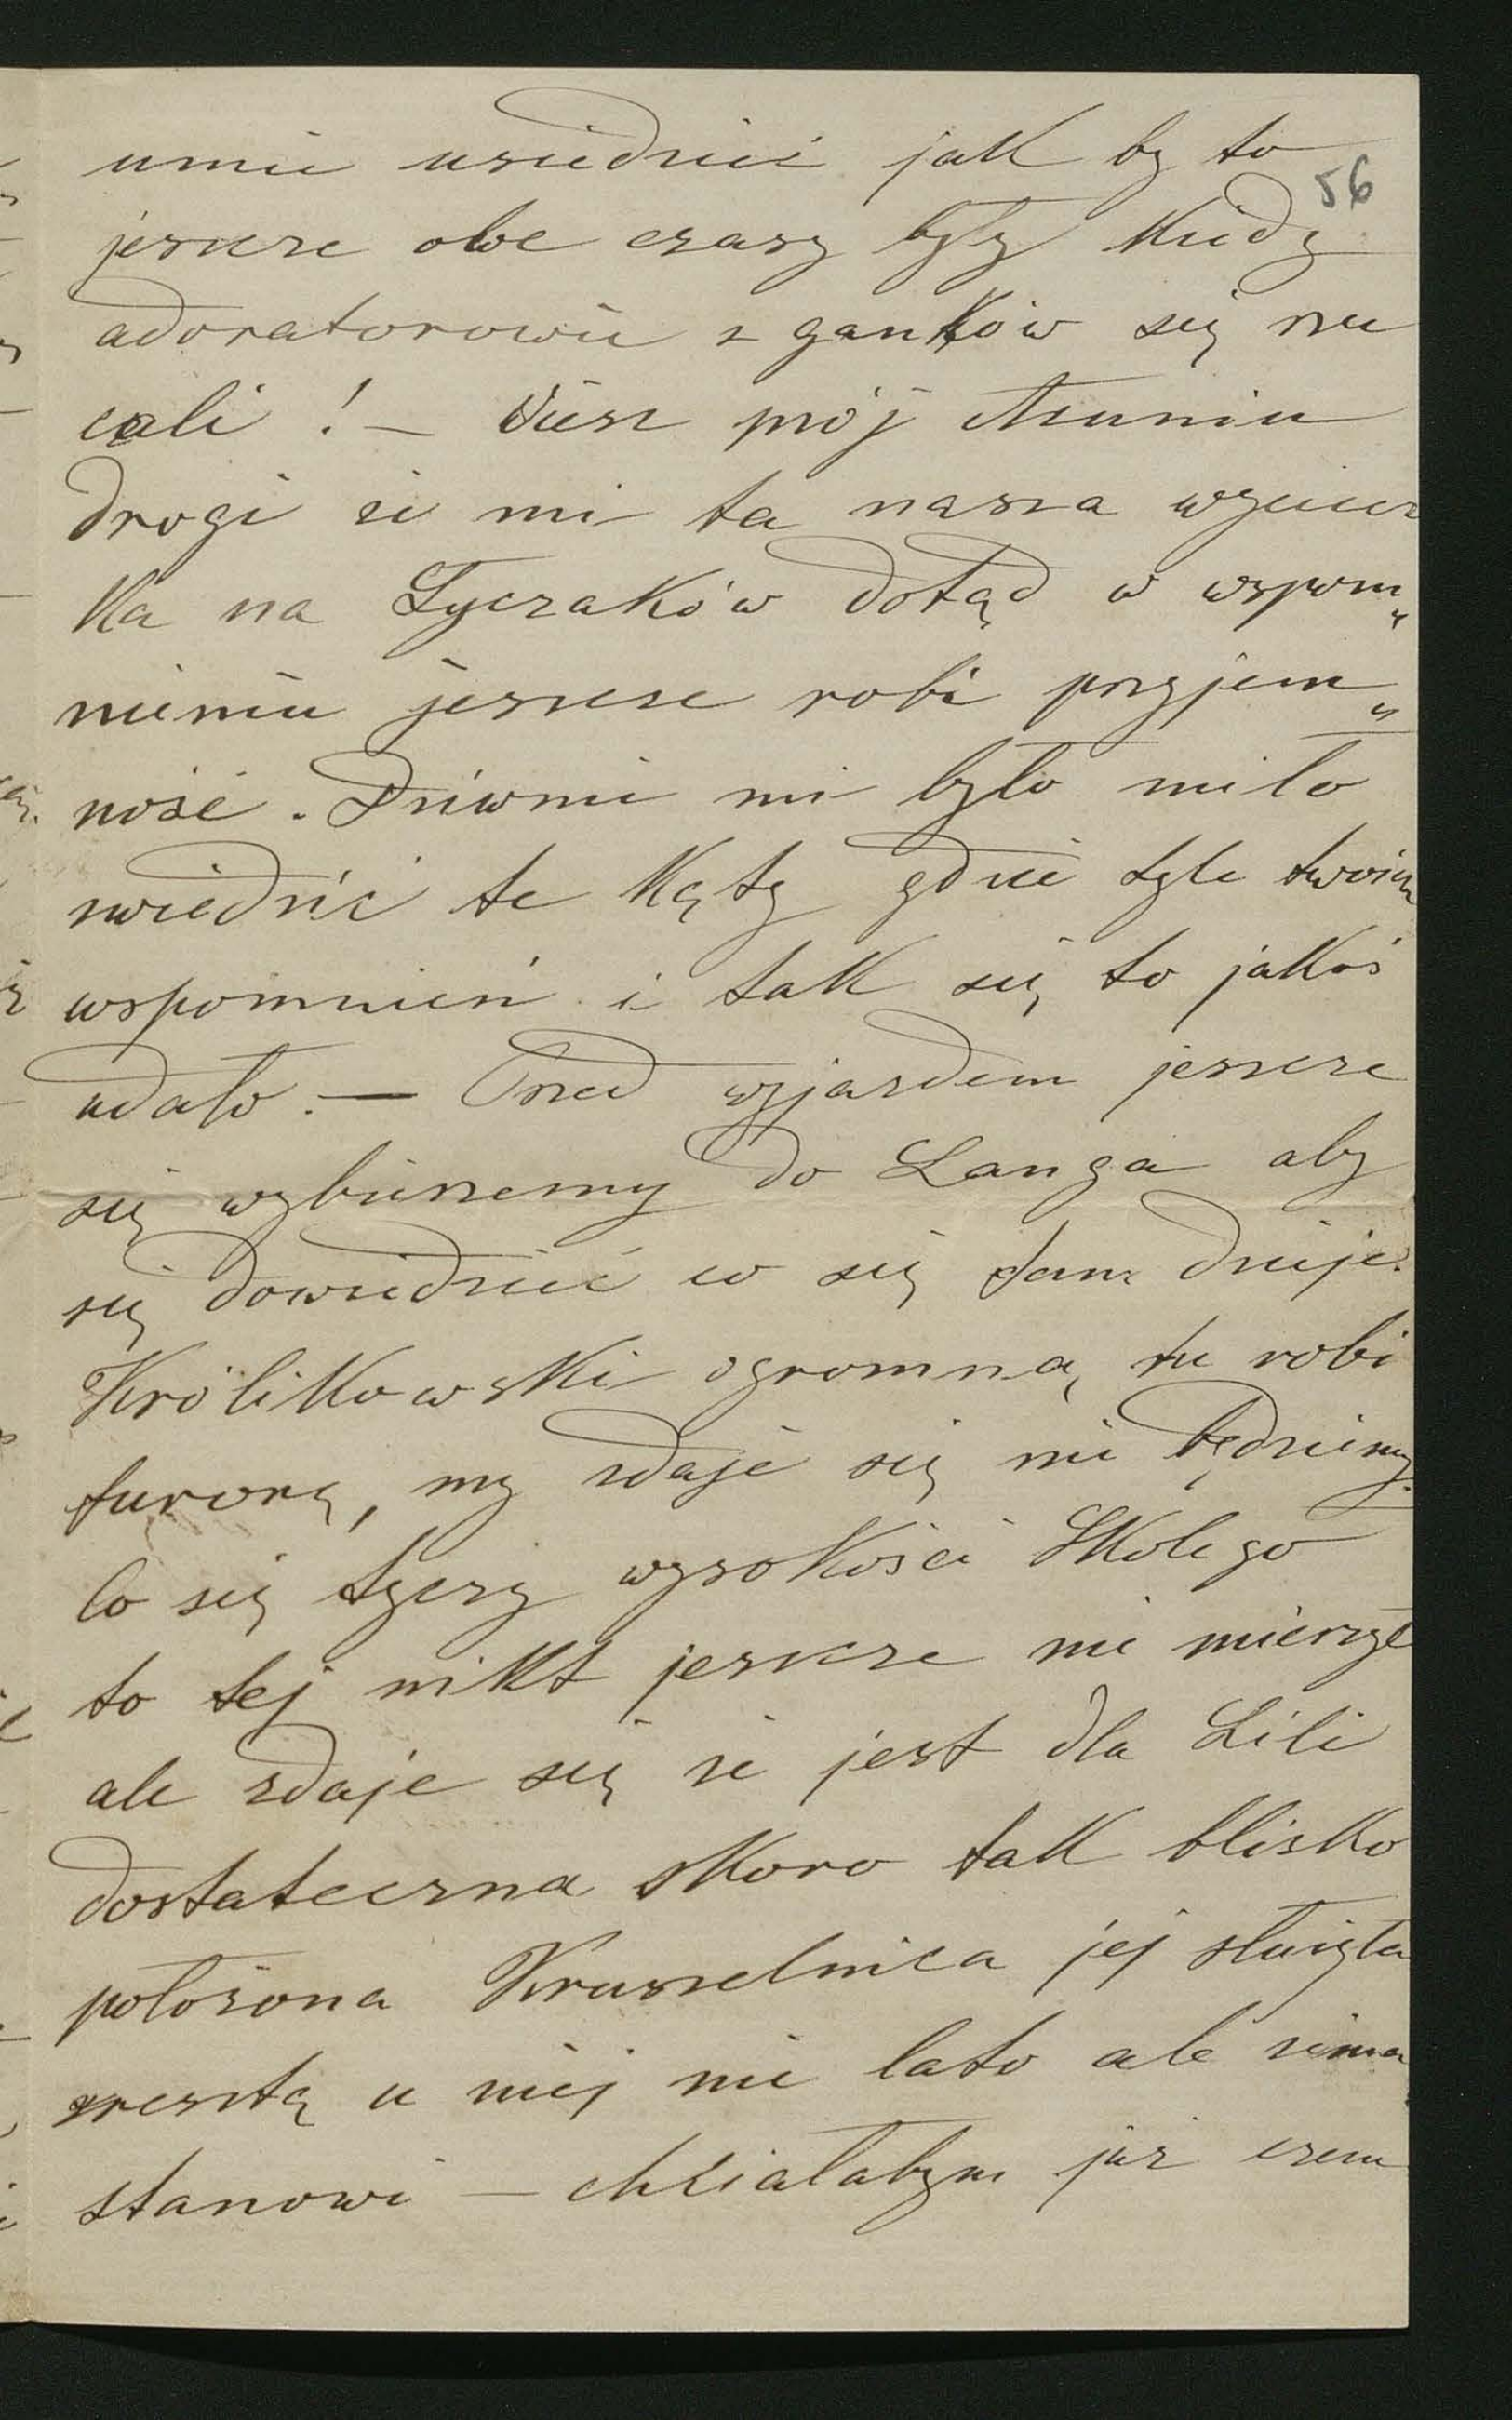 umie usiedzieć jak by to
56
jeszcze owe czasy były kiedy
adoratorowie z ganków się rzu
cali ! – Wiesz mój
drogi że mi ta nasza wyciecz
ka na Łyczaków dotąd w wspom„
nieniu jeszcze robi przyjem„
ność. Dziwnie mi było miło
zwiedzić te kąty gdzie tyle twoich
wspomnień i tak się to jakoś
udało. – Przed wyjazdem jeszcze
się wybierzemy do Langa aby
się dowiedzieć co się tam dzieje.
Królikowski ogromną tu robi
furorę, my zdaje się nie będziemy.
Co się tyczy wysokości Skolego
to tej nikt jeszcze nie mierzył
ale zdaje się że jest dla Lili
dostateczna skoro tak blisko
położona Kruszelnica jej służyła
zresztą u niej nie lato ale zima
stanowi – chciałabym już